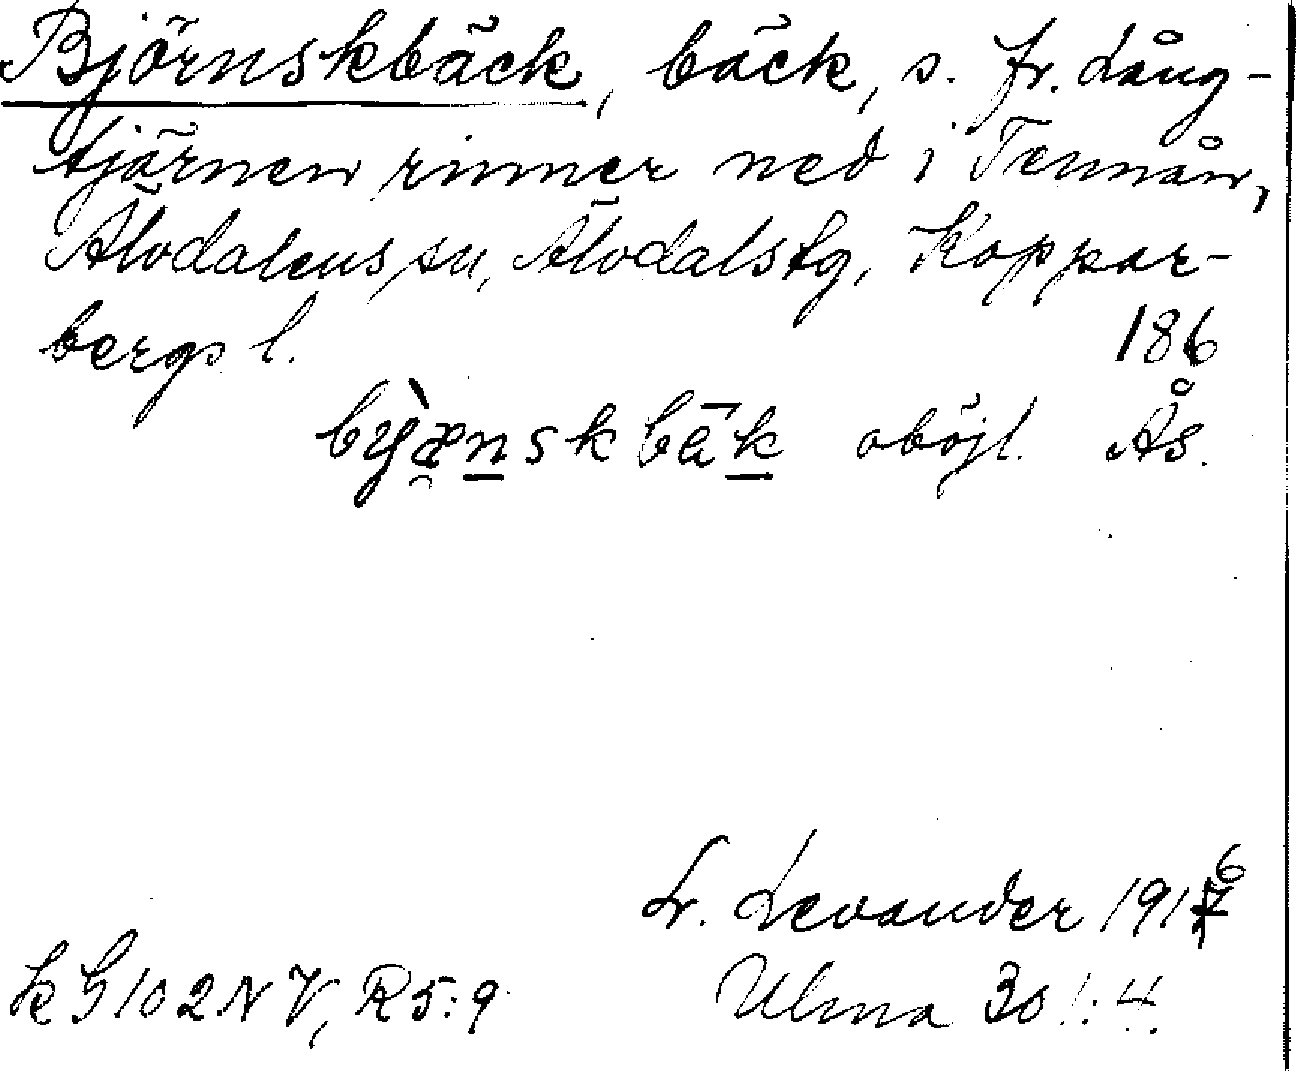 Björnskbäck, bäck, s. fr. Lång-
tjärnen rinner ned i Tennån,
Älvdalens sn, Älvdalstg, Koppar-
bergs l. 186
by̯æ̀nskbäk oböjl. Ås.
Lr. Levander 1916
k G 102 NV, R5:9 Ulma 301:4.